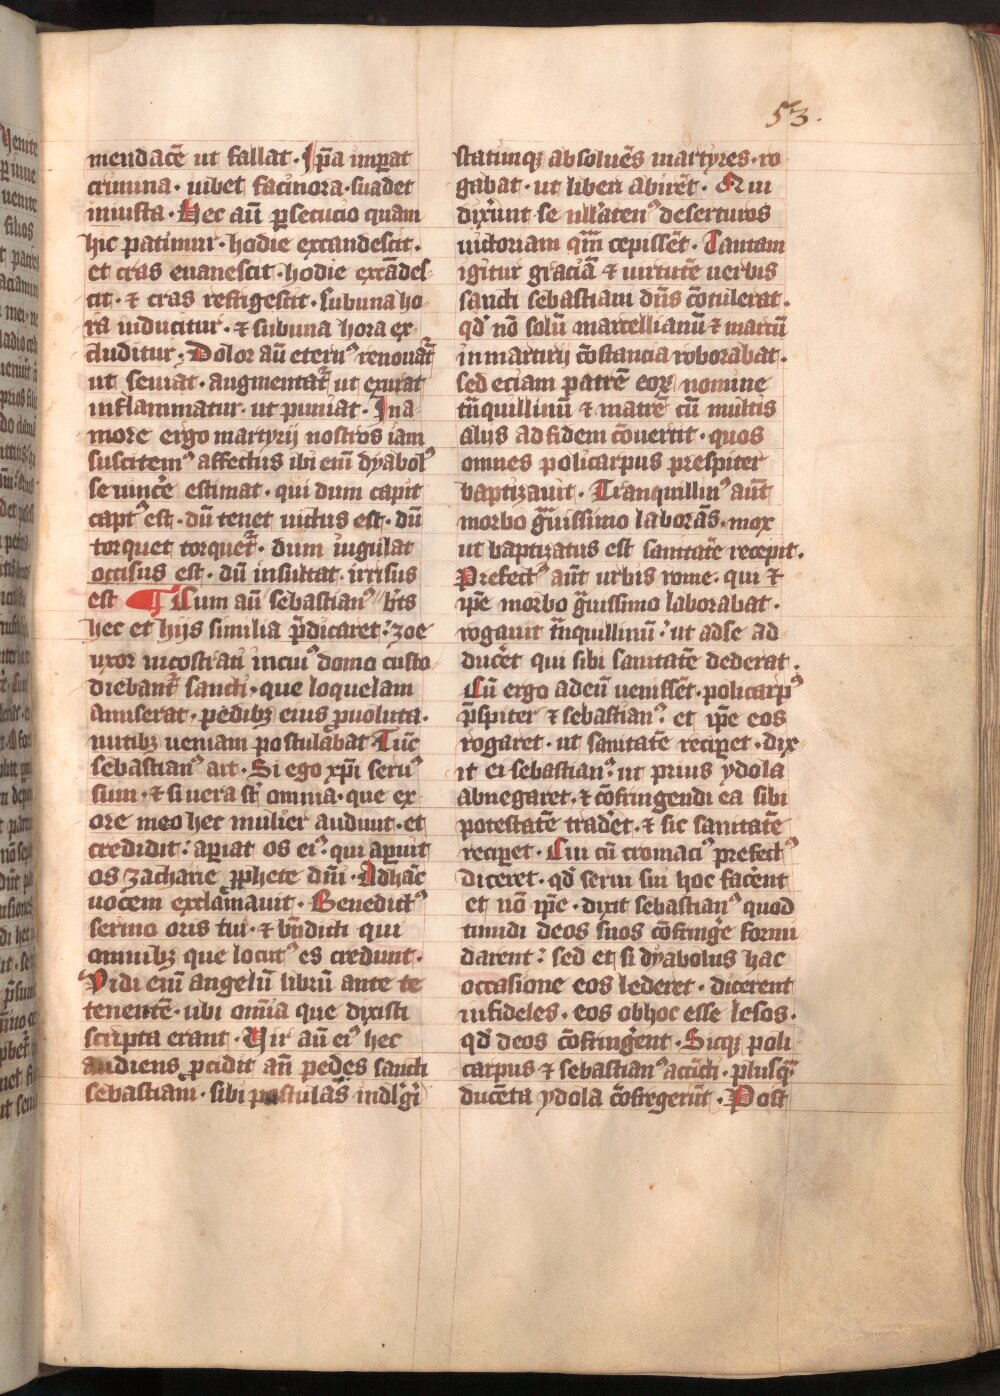 53.
mendacē ut fallat. Ip̄a imperat
crimina. iubet facinora. suadet
iniusta. Hec aū persecucio quam
hic patimur. hodie excandescit.
et cras euanescit. hodie excādes
cit. ⁊ cras refrigescit. sub una ho
ra inducitur. ⁊ sub una hora ex
cluditur. Dolor aū eternꝰ renouat᷑
ut seuiat. augmentat᷑ ut exurat
inflammatur. ut puniat. In a
more ergo martyrij nostros iam
suscitemꝰ affectus ibi eni᷑ dyabolꝰ
se uincꝰe estimat. qui dum capit
captꝰ est. dū tenet uictus est. dū
torquet torquet᷑. dum iugulat
occisus est. dū insultat. irrisus
est ¶ Cum aū sebastianꝰ bt̄s
hec et hijs similia p̄dicaret: zoe
uxor nicostrati in cuiꝰ domo custo
diebant᷑ sancti. que loquelam
amiserat. pedibꝫ eius ꝓuoluta.
nutibꝫ ueniam postulabat Tūc
sebastianꝰ ait. Si ego xp̄i seruꝰ
sum. ⁊ si uera st̄ omnia. que ex
ore meo hec mulier audiuit. et
credidit: aꝑiat os eiꝰ. qui aꝑuit
os zacharie ꝓphete dn̄i. Ad hāc
uocem exclamauit. Benedictꝰ
sermo oris tui. ⁊ bn̄dicti qui
omnibꝫ que locutꝰ es credunt.
Vidi eni᷑ angelū librū ante te
tenentē. ubi om̄ia que dixisti
scripta erant. Vir aū eiꝰ hec
audiens ꝓcidit an̄ pedes sancti
sebastiani. sibi postulās indl̓gi
statimqꝫ absoluēs martyres. ro
gabat. ut liberi abirēt. Qui
dixꝰunt se ullatenꝰ deserturos
uictoriam qm̄ cepissēt. Tantam
igitur graciā ⁊ uirtutē uerbis
sancti sebastiani dn̄s cōtulerat.
qd̓ nō solū marcellianū ⁊ marcū
in martirij cōstancia roborabat.
sed eciam patrē eoꝝ nomine
tn̄quillinū ⁊ matrē cū multis
alijs ad fidem cōuertit. quos
omnes policarpus prespiter
baptizauit. Tranquillinꝰ aūt
morbo gᷓuissimo laborās. mox
ut baptizatus est sanitatē recepit.
Prefectꝰ aūt urbis rome. qui ⁊
ip̄e morbo gᷓuissimo laborabat.
rogauit tn̄quillinū. ut ad se ad
ducēt qui sibi sanitatē dederat.
Cū ergo ad eū uenissēt. policarpꝰ
p̄spiter ⁊ sebastianꝰ. et ip̄e eos
rogaret. ut sanitatē reciꝑet. dix
it ei sebastianꝰ. ut prius ydola
abnegaret. ⁊ cōfringendi ea sibi
potestatē tradēt. ⁊ sic sanitatē
reciꝑet. Cui cū cromaciꝰ prefectꝰ
diceret. qd̓ serui sui hoc facēent
et nō ip̄e. dixit sebastianꝰ quod
timidi deos suos cōfringꝰe formi
darent: sed et si dyabolus hac
occasione eos lederet. dicerent
infideles. eos ob hoc esse lesos.
qd̓ deos cōfringꝰent. Sicqꝫ poli
carpus ⁊ sebastianꝰ accīcti. plusqᷓ
ducēta ydola cōfregerūt. Post